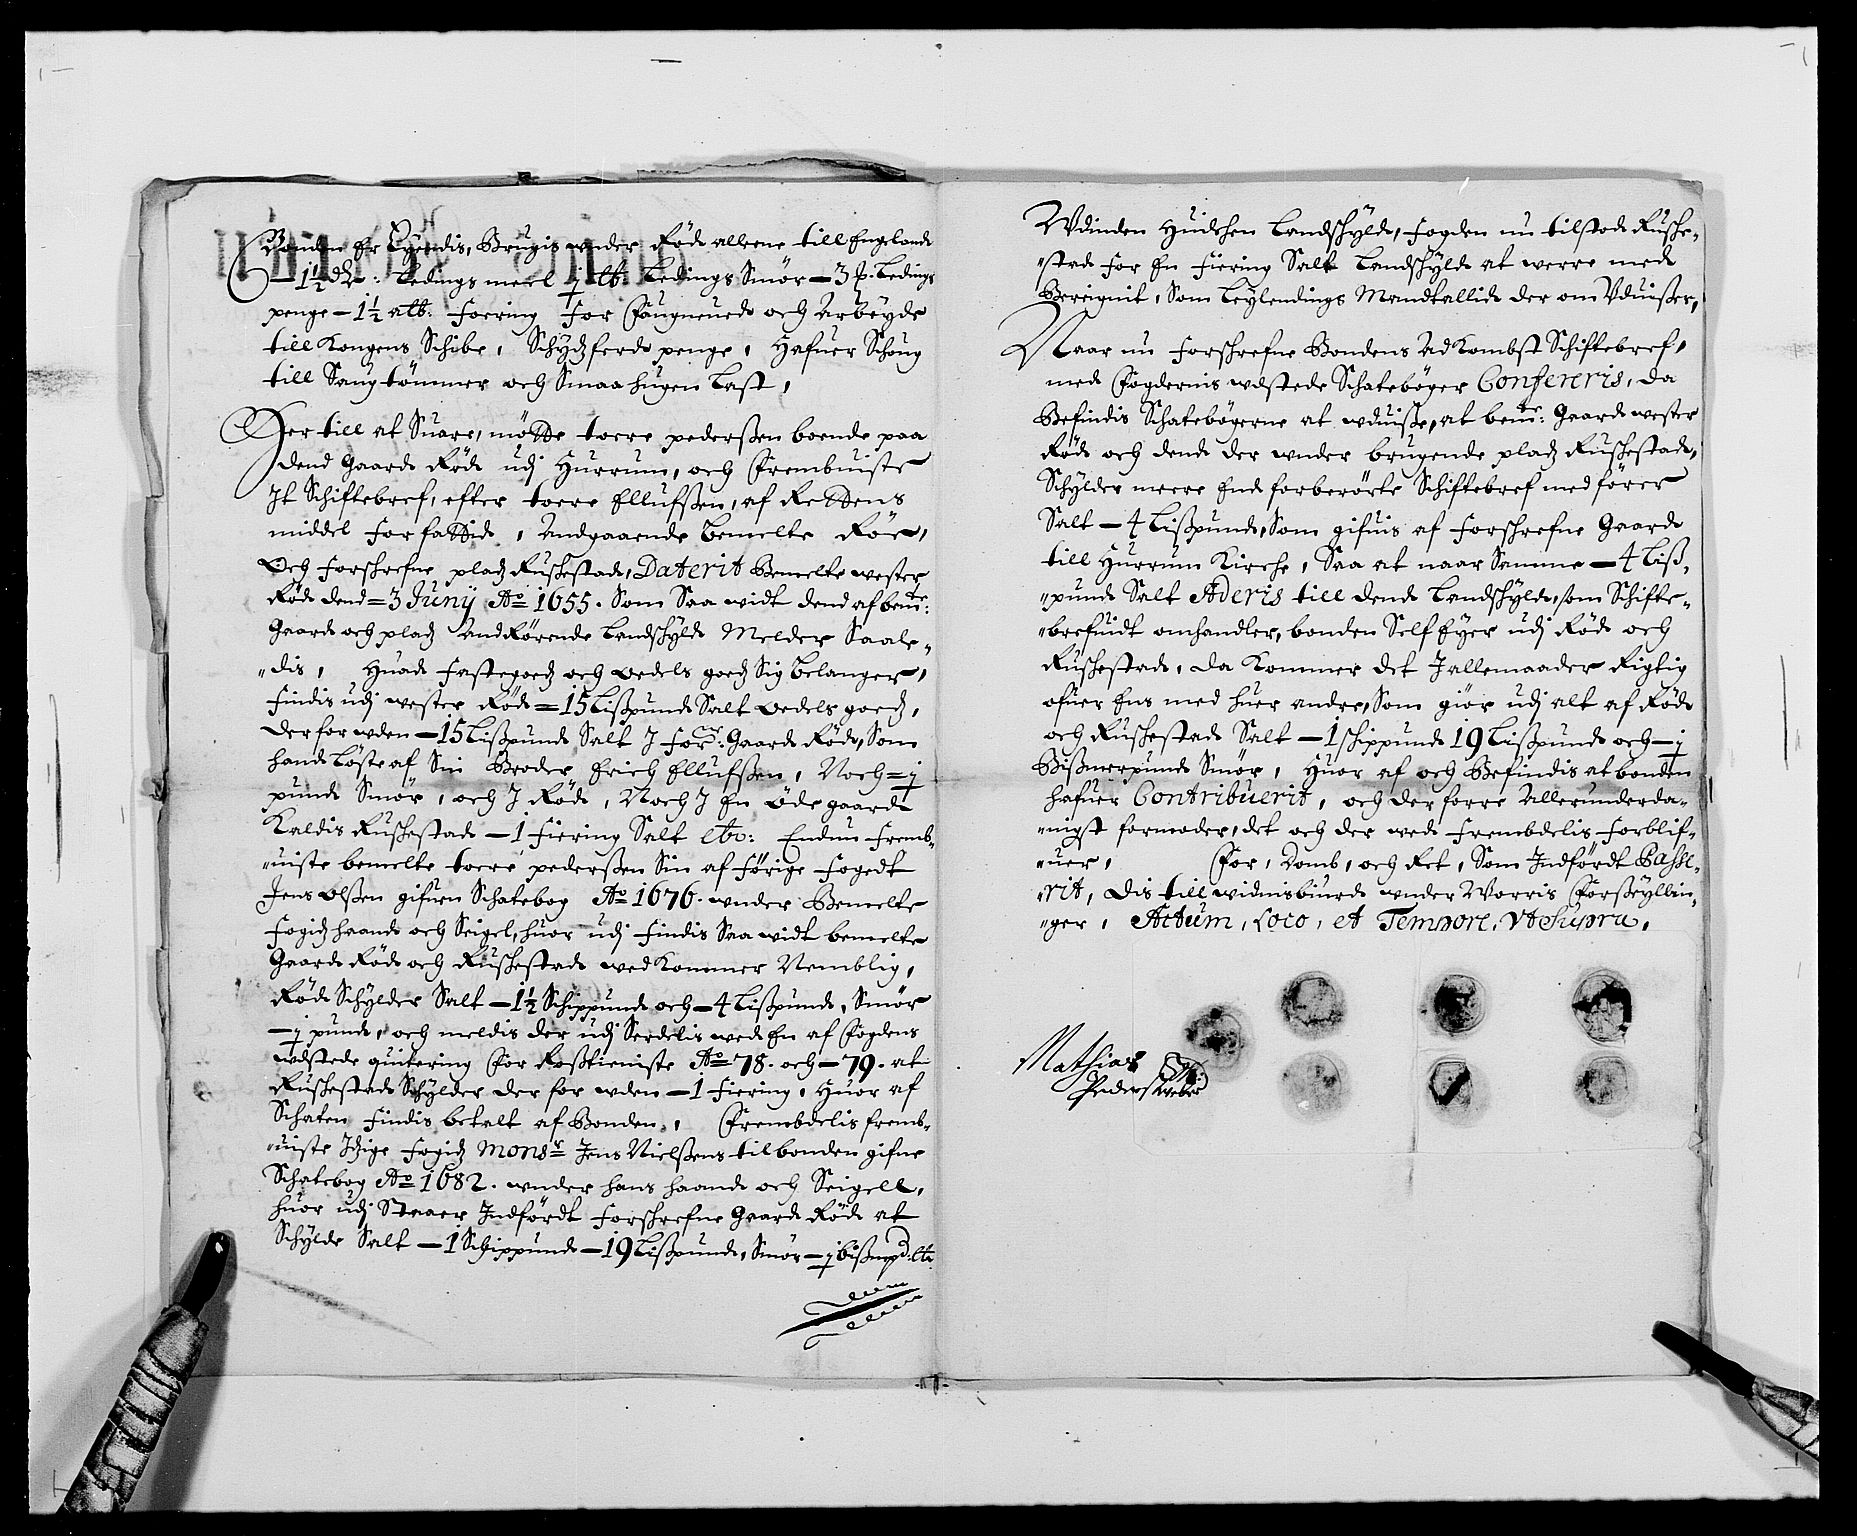 Bonden Er Eÿendis, Brugis wnder Röd alleene till Engeland
— 1½ dr: Ledings meel j ℔: Ledings Smör — 3 ß. Ledings
penge — 1½ alb: Foering for Faugneved och Arbeÿde
till Kongens Schibe, Schÿdzferds penge, Hafuer Schoug
till Saug tömmer och Smaa hugen Last,
Her till at Suare, mötte toere pederßen boende paa
dend Gaard Röd udj Hurrum, och Frembuiste
It Schiftebref, efter toere Ellufßen, af Rettens
middel forfattid, Andgaaende bemelte Röe,
Och forschrefne pladz Ruschestad, Daterit Bemelte wester
Röd dend = 3 Junij Ao 1655. Som Saa widt dend af bemte:
Gaard och pladz Andrörende Landschÿld Melder Saale-
"dis, Huad Fastegoedz och oedels goedz Sig belanger,
Findis udj wester Röd = 15 Lißpund Salt oedels goedz,
der for wden — 15 Lißpund Salt J forne: Gaard Röd, Som
hand Löste af Sin Broder Erich Ellufßen, Noch = j
pund Smör, och J Röd, Noch J En öde gaard
Kaldis Ruschestad — 1 Fiering Salt etc: Endnu Fremb-
"uiste bemelte toere pederßen Sin af Förige Fogedt
Jens Olßen gifuen Schatebog Ao 1676. wnder Bemelte
Fogidz haand och Seigel, huor udj Findis Saa widt bemelte
Gaard Röd och Ruschestad wed Kommer Nemblig,
Röd Schÿlder Salt — 1½ Schippund och — 4 Lißpund, Smör
— j pund, och meldis der udj Serdelis wed En af Fogdens
wdstede quitering For Roßtieniste Ao 78. och — 79. at
Ruschestad Schÿlder der for wden — 1 Fiering, Huor af
Schaten Findis betalt af Bonden, Frembdelis fremb-
"uiste Itzige Fogidz Monsr Jens Nielßens til bonden gifne
Schatebog Ao 1682. wnder hans haand och Seigell,
huor udj Staaer Indfördt forschrefne Gaard Röd at
Schÿlde Salt — 1 Schippund — 19 Lißpund, Smör — j bißmpd. etc.
Wdinden Huilchen Landschÿld, fogden nu tilstod Rusche-
"stad for En Fiering Salt Landschÿld at werre med
Bereignit, Som Leÿlendings Mandtallid der om Vduißer,
Naar nu forschrefne Bondens Ad Kombst Schiftebref,
med Fogdernis wdstede Schateböger Confereris, da
Befindis Schatebögerne at wduiße, at bemte: Gaard wester
Röd och dend der wnder brugende pladz Ruschestad,
Schÿlder meere End forberörte Schiftebref medförer
Salt — 4 Lißpund, Som gifuis af forschrefne Gaard
till Hurrum Kirche, Saa at naar Samme — 4 Liß-
"pund Salt Aderis till dend Landschÿld, som Schifte-
"brefuidt omhandler, bonden Self Eÿer udj Röd och
Ruschestad, da Kommer det J allemaader Rigtig
ofuer Ens med huer andre, Som giör udj alt af Röd
och Ruschestad Salt — 1 schippund 19 Lißpund och — j
Bißmerpund Smör, Huor af och Befindis at bonden
hafuer Contribuerit, och der forre Allerunderda-
"nigst formoder, det och der wed Frembdelis Forblif-
"uer, For, Domb, och Ret, Som Indfördt Passe-
"rit, Dis till widnisbiurd wnder Worris Forßeÿllin-
"ger, Actum, Loco, et Tempore, Vt Supra,
Mathias
Pederß